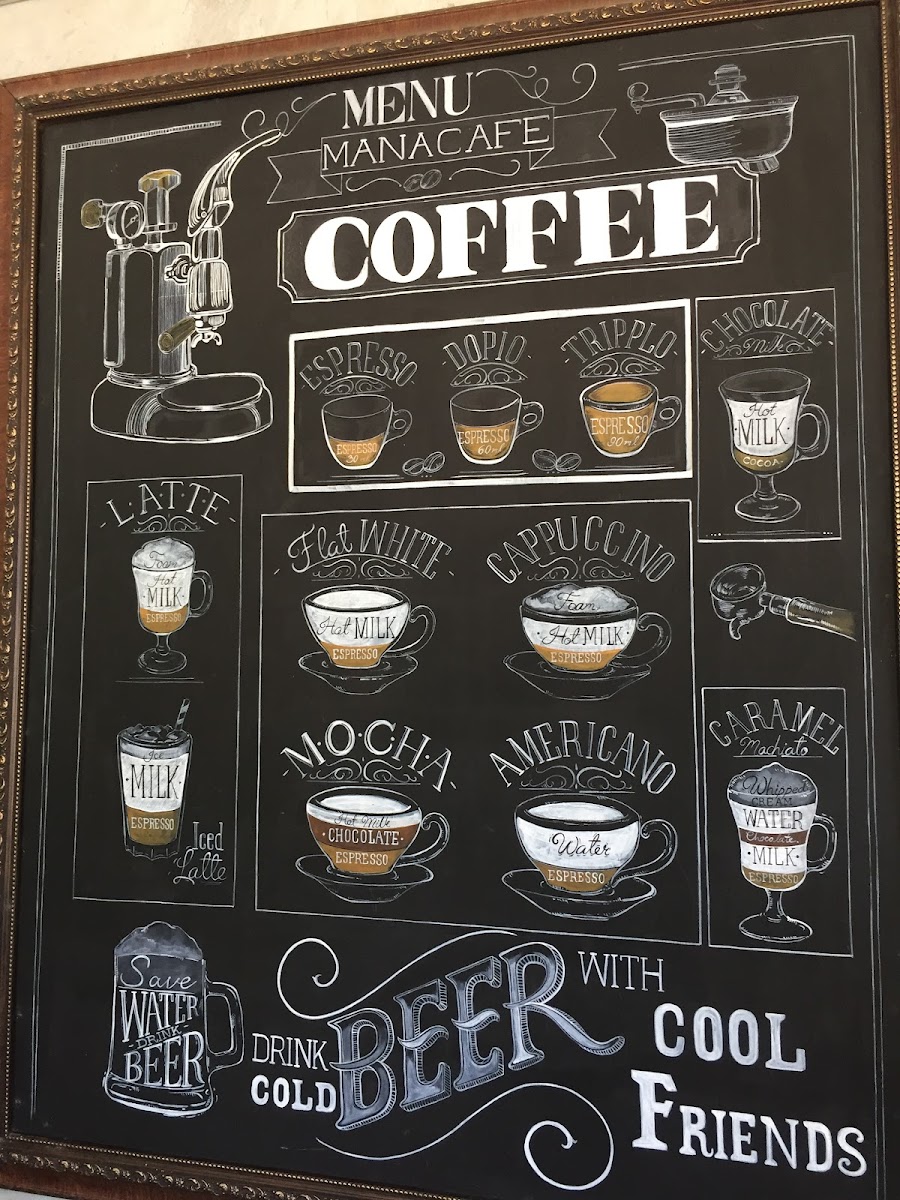 MENU
MANACAFE
COFFEE
ESPRESSO
ESPRESSO
30ml
DOPIO
ESPRESSO
60ml
TRIPPLO
ESPRESSO
90ml
CHOCOLATE
Milk
Hot
MILK
COCOA
LATTE
Foam
Hot
MILK
ESPRESSO
Ice
MILK
ESPRESSO
Iced
Latte
Flat WHITE
Hot MILK
ESPRESSO
CAPPUCCINO
Foam
Hot MILK
ESPRESSO
MOCHA
Hot Milk
CHOCOLATE
ESPRESSO
AMERICANO
Water
ESPRESSO
CARAMEL
Machiato
Whipped
CREAM
WATER
Chocolate
MILK
ESPRESSO
Save
WATER
DRINK
BEER
DRINK
COLD
BEER
WITH
COOL
FRIENDS